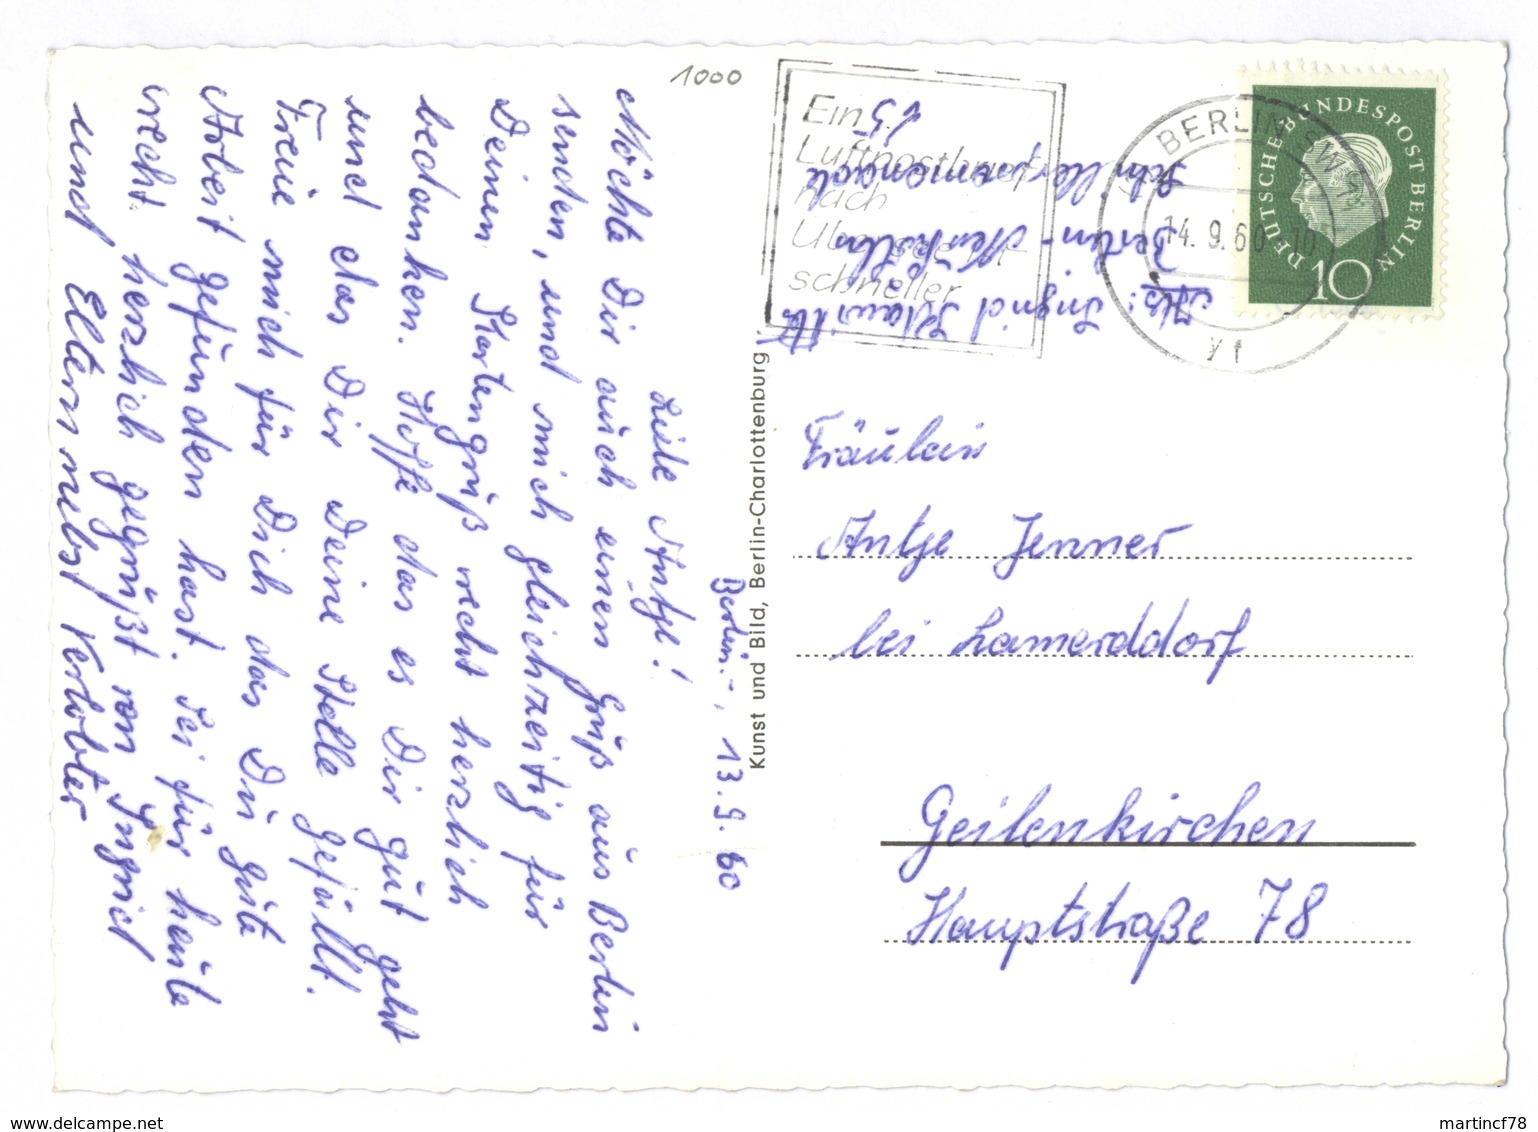 1000
Berlin-, 13.9.60
Liebe Antje!
Möchte Dir auch einen Gruß aus Berlin
senden, und mich gleichzeitig für
Deinen Kartengruß recht herzlich
bedanken. Hoffe das es Dir gut geht
und das Dir Deine Stelle gefällt.
Freue mich für Dich das Du gute
Arbeit gefunden hast. Sei für heute
recht herzlich gegrüßt von Ingrid
und Eltern nebst Verlobter
Kunst und Bild, Berlin-Charlottenburg
Ein
Luftpostbrief
nach
Übersee ist
schneller
Abs: Ingrid
Berlin-Neukölln
Schillerpromenade
BERLIN SW
14.9.60-10
DEUTSCHE BUNDESPOST BERLIN
10
Fräulein
Antje Jenner
bei Lamerddorf
Geilenkirchen
Hauptstraße 78
delcampe.net
martincf78